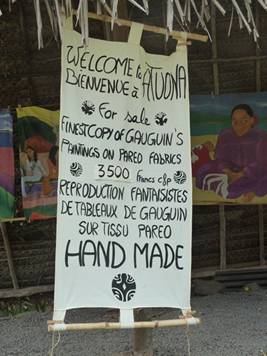 WELCOME to
BIENVENUE à ATUONA
For sale
FINEST COPY OF GAUGUIN'S
PAINTINGS ON PAREO FABRICS
3500 francs cfp
REPRODUCTION FANTAISISTES
DE TABLEAUX DE GAUGUIN
SUR TISSU PAREO
HAND MADE